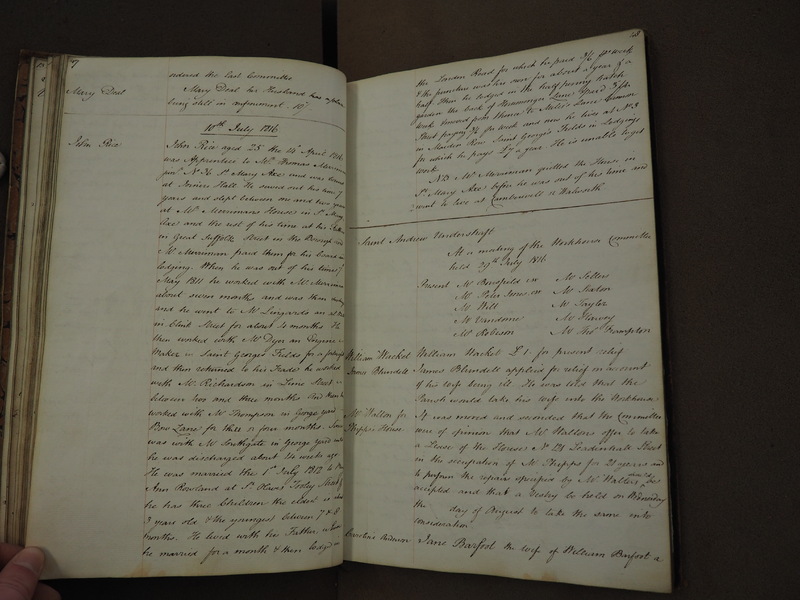 7
ordered the Last Committee
Mary Deal
Mary Deal her Husband has
being still in confinement 10/
10th July 1816
John Rice
John Rice aged 25 the 14 April 1816
was Apprentice to Mr Thomas Merriman
junr No 36 St Mary Axe and was bound
at Joiners Hall. He served out his time 7
years and slept between one and two years
at Mr Merrimans House in St Mary
Axe and the rest of his time at his Father's
in Great Suffolk Street in the Borough and
Mr Merriman paid them for his board and
lodging. When he was out of his time
May 1811 he worked with Mr Merriman
about seven months and was then
and he went to Mr Lingards in
in Clink Street for about 4 months He
then worked with Mr Dyer an Engine
Maker in Saint Georges Fields for a
and then returned to his Trade he worked
with Mr Richardson in Lime Street
between two and three months and then he
worked with Mr Thompson in George yard
Bow Lane for three or four months. Since
was with Mr Southgate in George yard until
he was discharged about 4 weeks ago
He was married the 1st July 1812 to
Ann Rowland at St Olaves Tooley Street &
he has three Children the eldest is about
3 years old & the youngest between 7 & 8
months. He lived with his Father when
he married for a month & then lodged in
the London Road for which he paid 3/6 pr week
& the furniture was his own for about a year & a
half. Then he lodged in the half penny hatch
garden the back of Lane & paid 3/ pr
week moved from thence to Mills's Lane
Street paying 3/ per week and now he lives at No 3
in Maiden Row Saint Georges Fields in Lodgings
for which he pays £ a year. He is unable to get
work.
NB Mr Merriman quitted the House in
St Mary Axe before he was out of his time and
went to live at Camberwell or Walworth
Saint Andrew Undershaft
At a meeting of the Workhouse Committee
held 29th July 1816
Present Mr Mr Sellers
Mr Peter Jones Mr Seaton
Mr Hill Mr Taylor
Mr Vandome Mr Harvey
Mr Robison Mr Thos Frampton
William Hackel
William Hackel £1. for present relief
James Blundell
James Blundell applied for relief on account
of his wife being ill. He was told that the
Parish would take his wife into the Workhouse
Mr Walton for
Phipps's House
It was moved and seconded that the Committee
were of opinion that Mr Waltons offer to take
a Lease of the House No 128 Leadenhall Street
in the occupation of Mr Phipps for 21 years and
to perform the repairs specified by Mr Walters be
accepted and that a Vestry be held on Wednesday
the day of August to take the same into
consideration
Caroline
Jane Barfoot the wife of William Barfoot a